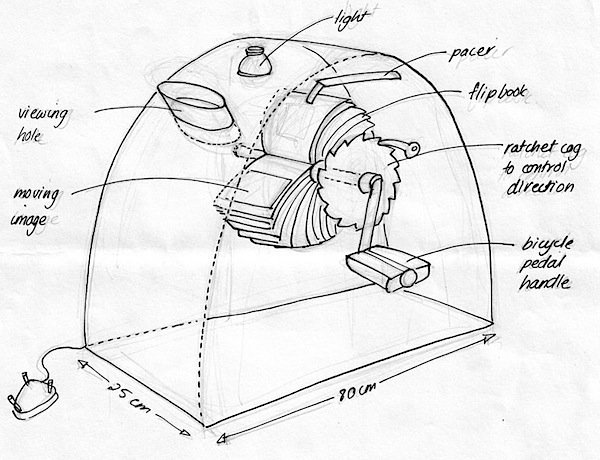 light
pacer
flipbook
viewing
hole
ratchet cog
to control
direction
moving
image
bicycle
pedal
handle
25cm
80cm